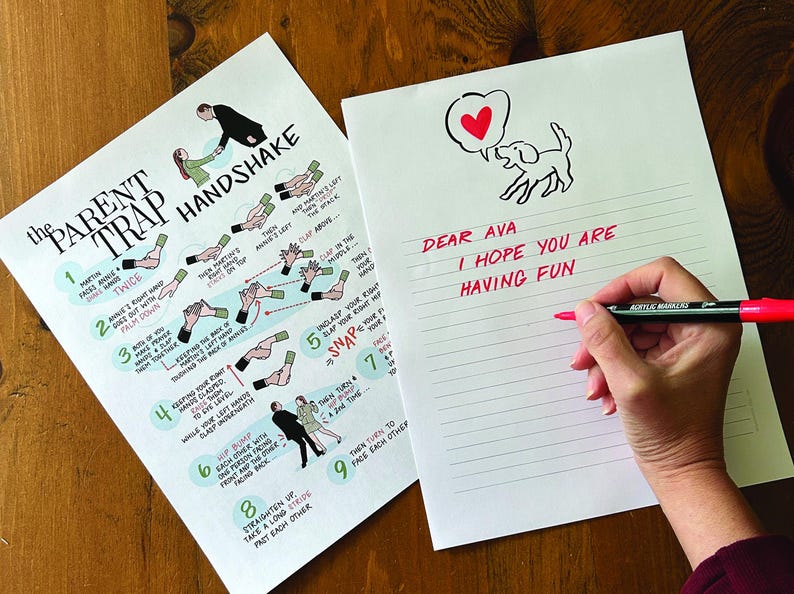 the
PARENT
TRAP
HANDSHAKE
1
MARTIN & ANNIE
FACES
SHAKE HANDS
TWICE
THEN MARTIN'S
RIGHT HAND
STACKS ON TOP
THEN
ANNIE'S LEFT
AND MARTIN'S LEFT
THEN "DROP"
THE STACK.
2
ANNIE'S RIGHT HAND
GOES OUT WITH
PALM DOWN
CLAP ABOVE...
CLAP IN THE
MIDDLE...
3
BOTH OF YOU
MAKE PRAYER
HANDS & SLAP
THEM TOGETHER
KEEPING THE BACK OF
MARTIN'S LEFT HAND
TOUCHING THE BACK OF ANNIE'S
4
KEEPING YOUR RIGHT
HANDS CLASPED,
RAISE THEM
TO EYE LEVEL
WHILE YOUR LEFT HANDS
CLASP UNDERNEATH
5
UNCLASP YOUR RIGHT
SLAP YOUR RIGHT
SNAP
6
HIP BUMP
EACH OTHER WITH
ONE PERSON FACING
FRONT AND THE OTHER
FACING BACK
THEN TURN &
HIP BUMP
A 2nd TIME...
7
8
STRAIGHTEN UP,
TAKE A LONG STRIDE
PAST EACH OTHER
9
THEN TURN TO
FACE EACH OTHER
DEAR AVA
I HOPE YOU ARE
HAVING FUN
ACRYLIC MARKERS